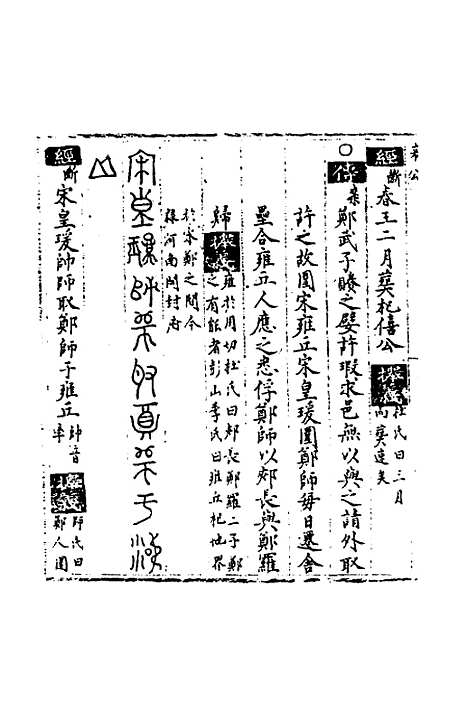 哀公
經 斷 春王二月葬杞僖公 杜氏曰三月而葬速夫
傳 ○ 鄭武子賸之嬖許瑕求邑無以與之請外取
許之故圍宋雍丘宋皇瑗圍鄭師每日遷舍
壘合雍丘人應之悉俘鄭師以郟長與鄭羅
歸 雍於用切杜氏曰郟長鄭羅二子鄭之有能者彭山季氏曰雍丘杞也界
於宋鄭之間今隸河南開封府
經 斷 宋皇瑗帥師取鄭師于雍丘 帥音率 師氏曰鄭人圍